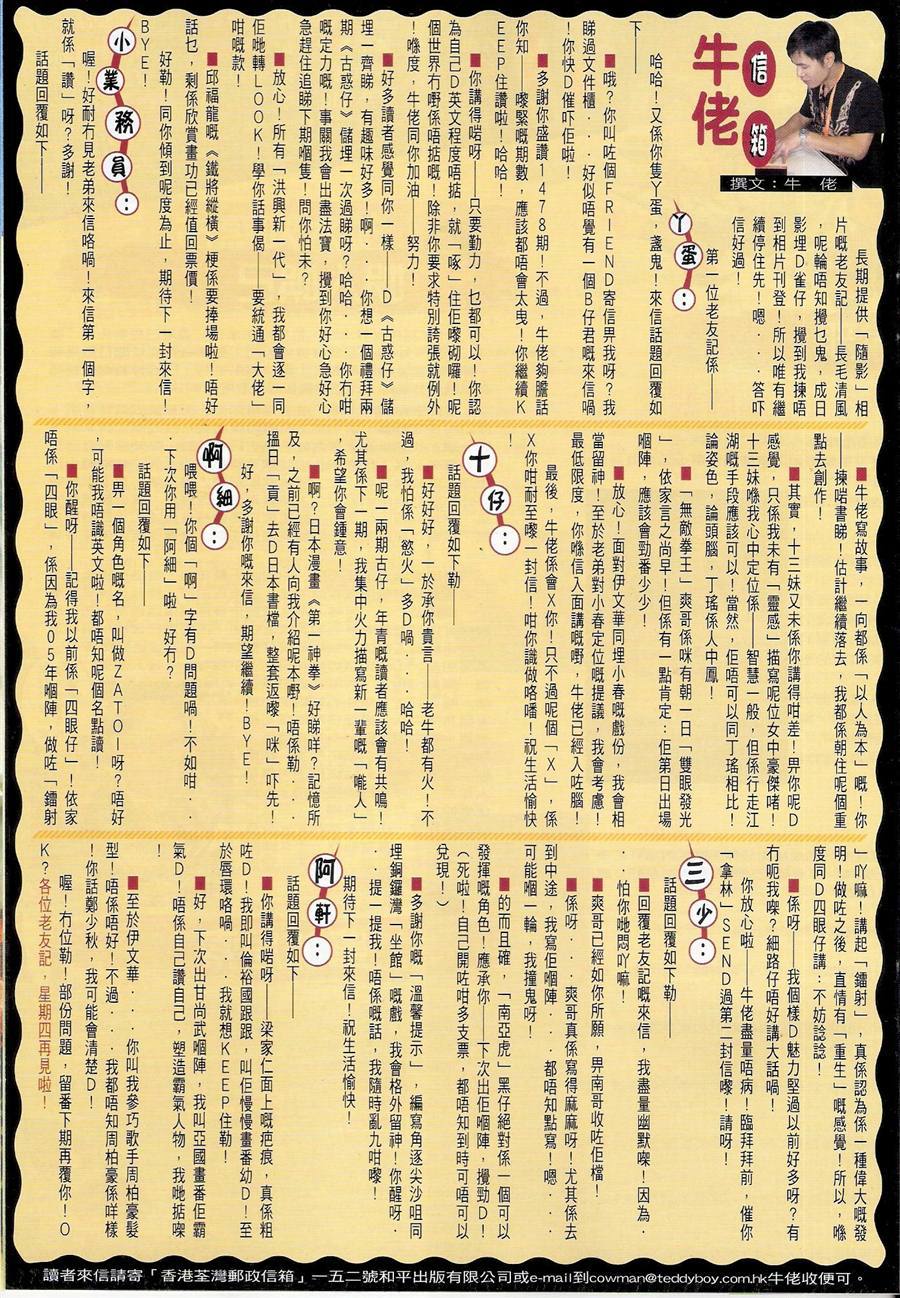 牛佬
信箱
撰文：牛　佬
長期提供「隨影」相
片嘅老友記——長毛清風
，呢輪唔知攪乜鬼，成日
影埋D雀仔，攪到我揀唔
到相片刊登！所以唯有繼
續停住先！嗯．．．答吓
信好過！
第一位老友記係——
丫蛋：
哈哈！又係你隻丫蛋，盞鬼！來信話題回覆如
下——
■哦？你叫咗個FRIEND寄信畀我呀？我
睇過文件櫃．．．好似唔覺有一個B仔君嘅來信喎
！你快D催吓佢啦！
■多謝你盛讚1478期！不過，牛佬夠膽話
你知——嚟緊嘅期數，應該都唔會太曳！你繼續K
EEP住讚啦！哈哈！
■你講得啱呀——只要勤力，乜都可以！你認
為自己D英文程度唔掂，就「啄」住佢嚟砌囉！呢
個世界冇嘢係唔掂嘅！除非你要求特別誇張就例外
！喺度，牛佬同你加油——努力！
■好多讀者感覺同你一樣——D《古惑仔》儲
埋一齊睇，有趣味好多！啊．．．你想一個禮拜兩
期《古惑仔》儲埋一次過睇呀？哈哈．．．你冇咁
嘅定力嘅！事關我會出盡法寶，攪到你好心急好心
急趕住追睇下期嗰隻！問你怕未？
■放心！所有「洪興新一代」，我都會逐一同
佢哋轉LOOK！學你話事偈——要統通「大佬」
咁嘅款！
■邱福龍嘅《鐵將縱橫》梗係要捧場啦！唔好
話乜，剩係欣賞畫功已經值回票價！
好勒！同你傾到呢度為止，期待下一封來信！
BYE！
小業務員：
喔！好耐冇見老弟來信咯喎！來信第一個字，
就係「讚」呀？多謝！
話題回覆如下——
■牛佬寫故事，一向都係「以人為本」嘅！你
——揀啱書睇！估計繼續落去，我都係朝住呢個重
點去創作！
■其實，十三妹又未係你講得咁差！畀你呢D
感覺，只係我未有「靈感」描寫呢位女中豪傑啫！
十三妹喺我心中定位係——智慧一般，但係行走江
湖嘅手段應該可以！當然，佢唔可以同丁瑤相比！
論姿色，論頭腦，丁瑤係人中鳳！
■「無敵拳王」爽哥係咪有朝一日「雙眼發光
」，依家言之尚早！但係有一點肯定：佢第日出場
嗰陣，應該會勁番少少！
■放心！面對伊文華同埋小春嘅戲份，我會相
當留神！至於老弟對小春定位嘅提議，我會考慮！
最低限度，你喺信入面講嘅嘢，牛佬已經入咗腦！
最後，牛佬係會X你！只不過呢個「X」，係
X你咁耐至嚟一封信！咁你識做咯嘛！祝生活愉快
！
十仔：
話題回覆如下勒——
■好好好，一於承你貴言——老牛都有火！不
過，我怕係「慾火」多D喎．．．哈哈！
■呢一兩期古仔，年青嘅讀者應該會有共鳴！
尤其係下一期，我集中火力描寫新一輩嘅「嚨人」
，希望你會鍾意！
■啊？日本漫畫《第一神拳》好睇咩？記憶所
及，之前已經有人向我介紹呢本嘢！唔係勒．．．
搵日「貢」去D日本書檔，整套返嚟「咪」吓先！
好，多謝你嘅來信，期望繼續！BYE！
啊細：
喂喂！你個「啊」字有D問題喎！不如咁．．
．下次你用「阿細」啦，好冇？
話題回覆如下——
■畀一個角色嘅名，叫做ZATOI呀？唔好
，可能我唔識英文啦！都唔知呢個名點讀！
■你醒呀——記得我以前係「四眼仔」！依家
唔係「四眼」，係因為我05年嗰陣，做咗「鐳射
」吖嘛！講起「鐳射」，真係認為係一種偉大嘅發
明！做咗之後，直情有「重生」嘅感覺！所以，喺
度同D四眼仔講：不妨諗諗！
■係呀——我個樣D魅力堅過以前好多呀？有
冇呃我㗎？細路仔唔好講大話喎！
你放心啦——牛佬盡量唔病！臨拜拜前，催你
「拿林」SEND過第二封信嚟！請呀！
三少：
話題回覆如下勒——
■回覆老友記嘅來信，我盡量幽默㗎！因為．
．怕你哋悶吖嘛！
■爽哥已經如你所願，畀南哥收咗佢檔！
■係呀．．．爽哥真係寫得麻麻呀！尤其係去
到中途，我寫佢嗰陣．．．都唔知點寫！嗯．．．
可能嗰一輪，我撞鬼呀！
■的而且確，「南亞虎」黑仔絕對係一個可以
發揮嘅角色！應承你——下次出佢嗰陣，攪勁D！
（死啦！自己開咗咁多支票，都唔知到時可唔可以
兌現！）
■多謝你嘅「溫馨提示」，編寫角逐尖沙咀同
埋銅鑼灣「坐館」嘅戲，我會格外留神！你醒呀．
．．提一提我！唔係嘅話，我隨時亂九咁嚟！
期待下一封來信！祝生活愉快！
阿軒：
話題回覆如下——
■你講得啱呀——梁家仁面上嘅疤痕，真係粗
咗D！我即叫倫裕國跟跟，叫佢慢慢畫番幼D！至
於唇環咯喎．．．我就想KEEP住勒！
■好，下次出甘尚武嗰陣，我叫亞國畫番佢霸
氣D！唔係自己讚自己，塑造霸氣人物，我哋掂㗎
！
■至於伊文華．．．你叫我參巧歌手周柏豪髮
型！唔係唔好！不過．．．我都唔知周柏豪係咩樣
！你話鄭少秋，我可能會清楚D！
喔！冇位勒！部份問題，留番下期再覆你！O
K？各位老友記，星期四再見啦！
讀者來信請寄「香港荃灣郵政信箱」一五二號和平出版有限公司或e-mail到cowman@teddyboy.com.hk牛佬收便可。